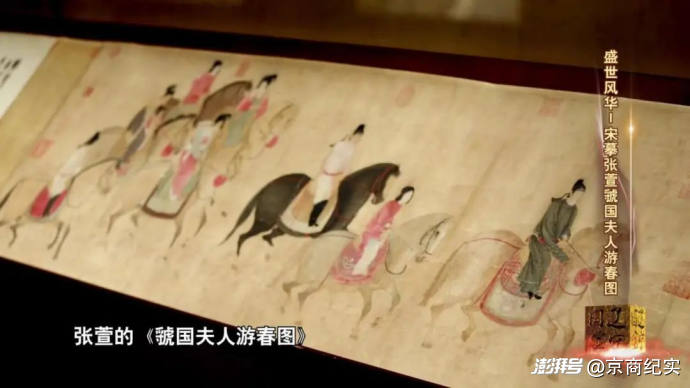 盛世风华-宋摹张萱虢国夫人游春图
张萱的《虢国夫人游春图》
澎湃号@京商纪实